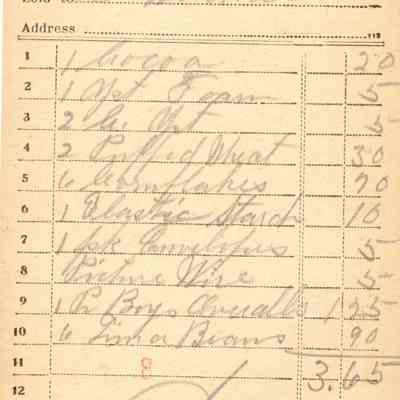 Sold to
Address
1 1 Cocoa 20
2 1 Yst Foam 5
3 2 Yst 5
4 2 Puffed Wheat 30
5 6 Cornflakes 70
6 1 Elastic Starch 10
7 1 pk Envelopes 5
8 Picture Wire 5
9 1 Pr Boys Overalls 1 25
10 6 Lima Beans 90
11 8 3.65
12